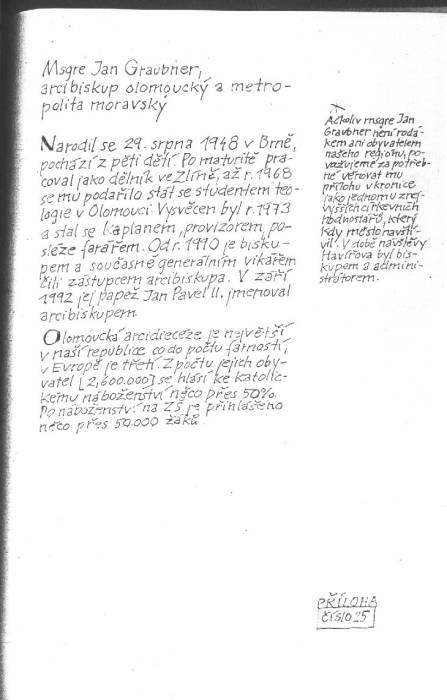 Msgre Jan Graubner,
arcibiskup olomoucký a metro-
polita moravský
Narodil se 29. srpna 1948 v Brně,
pochází z pěti dětí. Po maturitě pra-
coval jako dělník ve Zlíně, až r. 1968
se mu podařilo stát se studentem teo-
logie v Olomouci. Vysvěcen byl r. 1973
a stal se kaplanem, provizorem, po-
sléze farářem. Od r. 1990 je bisku-
pem a současně generálním vikářem
čili zástupcem arcibiskupa. V září
1992 jej papež Jan Pavel II. jmenoval
arcibiskupem.
Olomoucká arcidiecéze je největší
v naší republice co do počtu farností,
v Evropě je třetí. Z počtu jejich oby-
vatel [2,600.000] se hlásí ke katolic-
kému náboženství něco přes 50%.
Po náboženství na ZŠ je přihlášeno
něco přes 50.000 žáků.
Ačkoliv msgre Jan
Graubner není rodá-
kem ani obyvatelem
našeho regionu, po-
važujeme za potřeb-
né věnovat mu
přílohu v kronice
jako jednomu z nej-
vyšších církevních
hodnostářů, který
kdy město navští-
vil. V době návštěvy
Havířova byl bis-
kupem a admini-
strátorem.
PŘÍLOHA
ČÍSLO 25